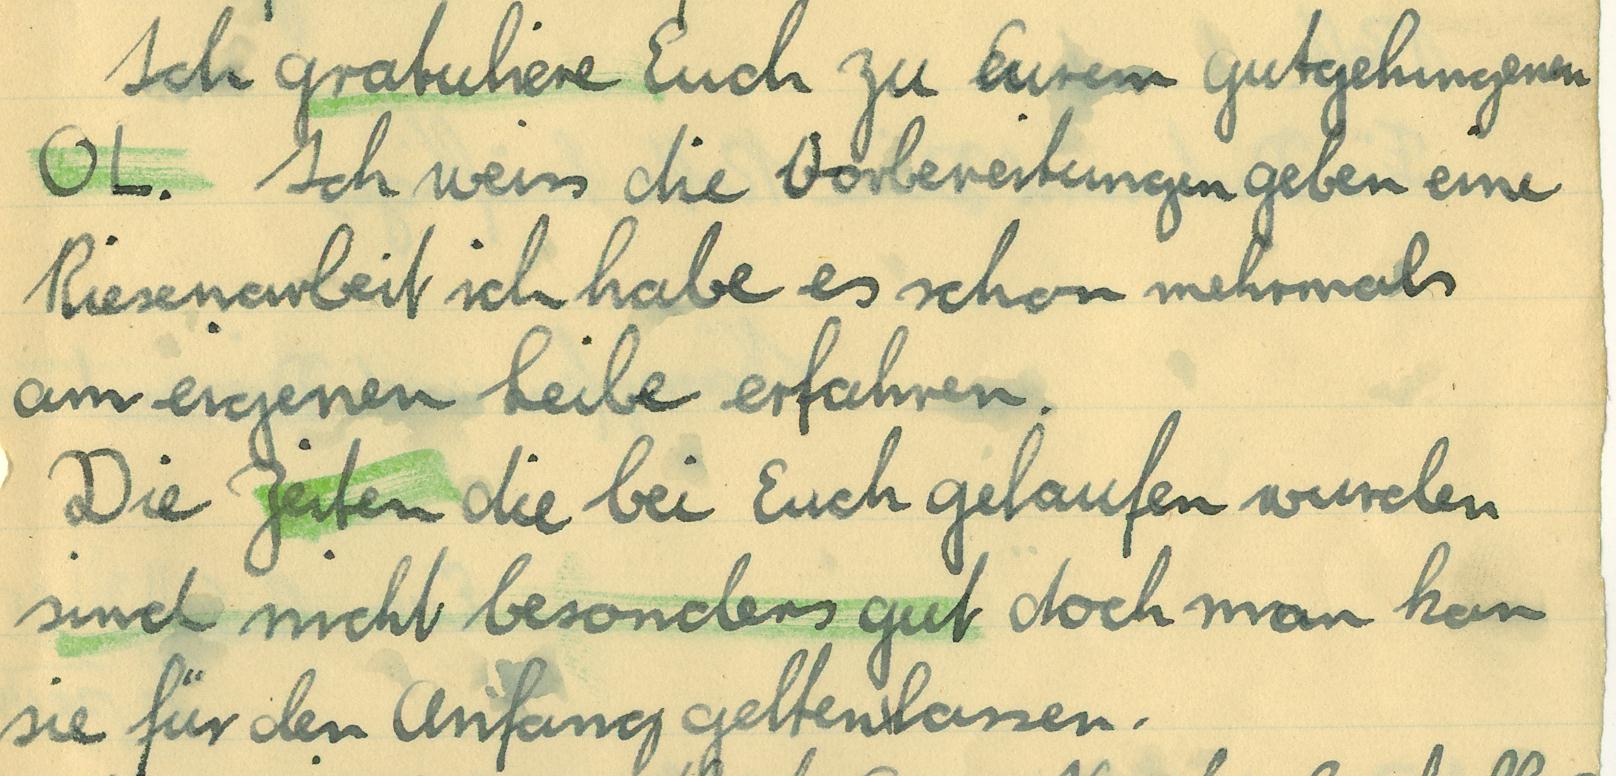 Ich gratuliere Euch zu Eurem gutgelungenen
OL. Ich weiss die Vorbereitungen geben eine
Riesenarbeit ich habe es schon mehrmals
am eigenen Leibe erfahren.
Die Zeiten die bei Euch gelaufen wurden
sind nicht besonders gut doch man kan
sie für den Anfang geltenlassen.